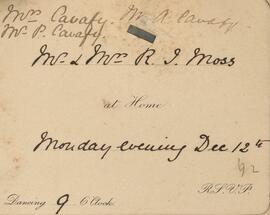 Mrs Cavafy. Mr R. Cavafy.
Mr P. Cavafy.
Mr & Mrs R. J. Moss
at Home
Monday evening Dec 12th
92
R.S.V.P.
Dancing 9 O'Clock.